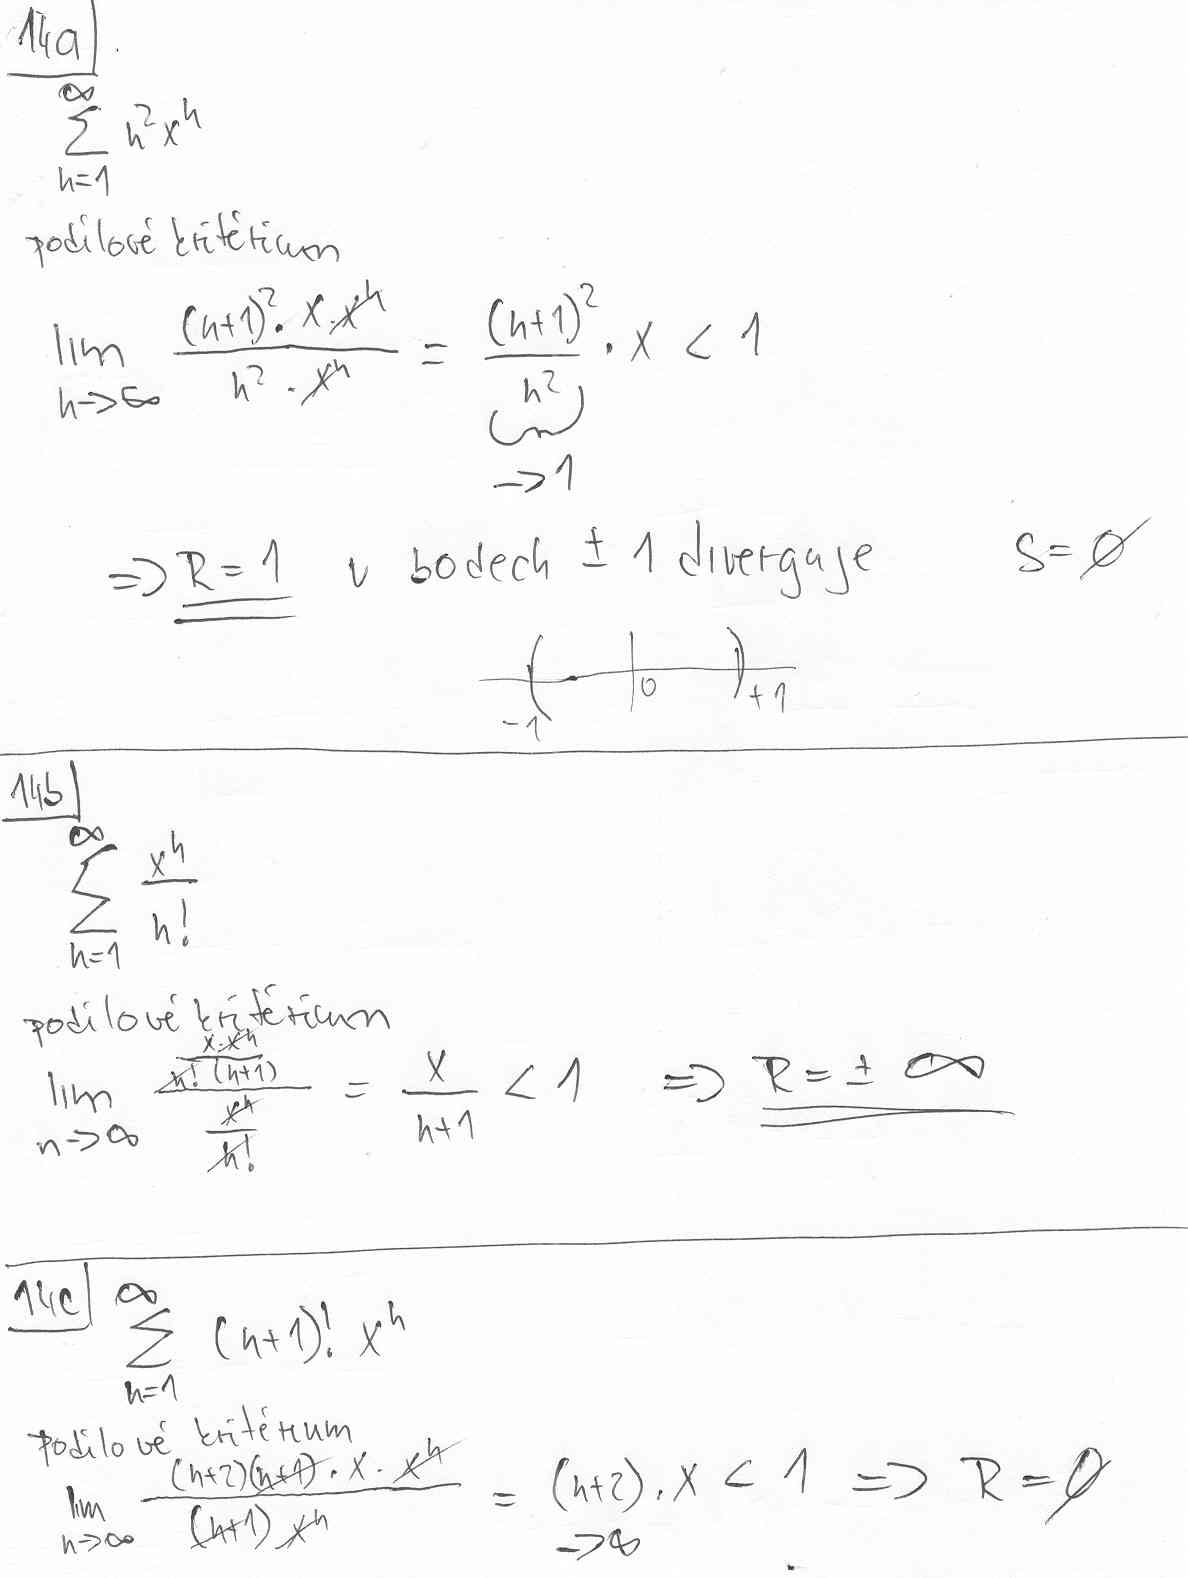 14a
∞
∑ n²xⁿ
n=1
podílové kritérium
lim (n+1)²·x·xⁿ / n²·xⁿ = (n+1)²/n² · x < 1
n→∞
→1
⇒ R = 1 v bodech ± 1 diverguje S=∅
-1 0 +1
14b
∞
∑ xⁿ/n!
n=1
podílové kritérium
lim (x·xⁿ / n!(n+1)) / (xⁿ/n!) = x/(n+1) < 1 ⇒ R = ± ∞
n→∞
14c ∞
∑ (n+1)! xⁿ
n=1
podílové kritérium
lim (n+2)(n+1)·x·xⁿ / (n+1) xⁿ = (n+2)·x < 1 ⇒ R = ∅
n→∞ →∞